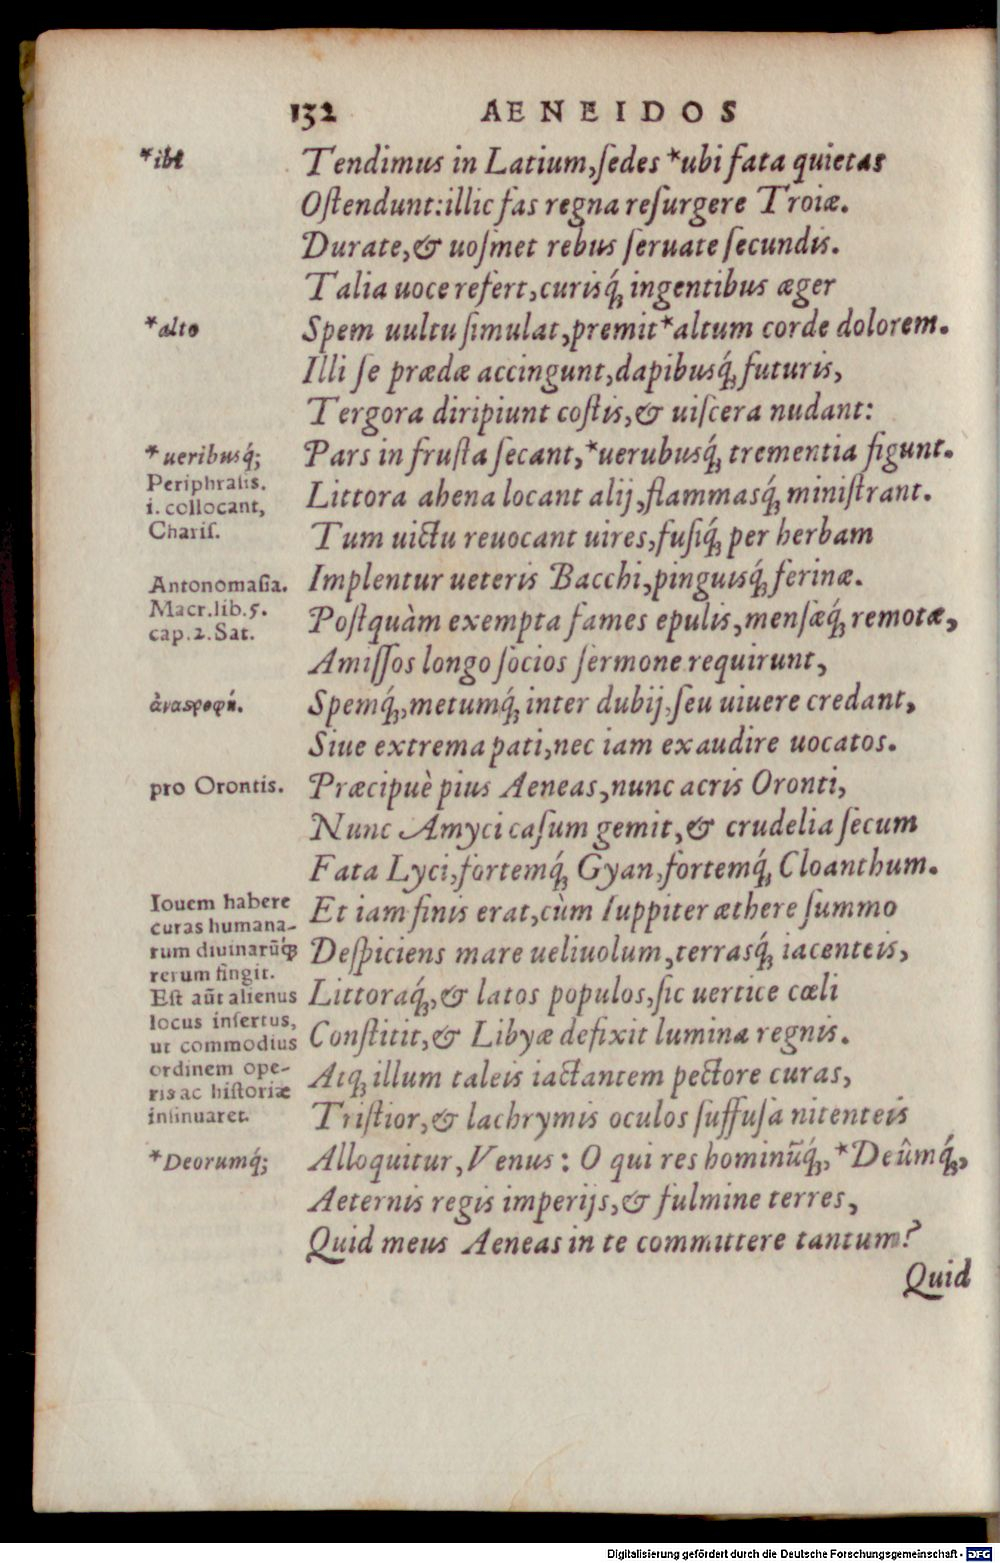 132 AENEIDOS
*ibi
Tendimus in Latium, ſedes *ubi fata quietas
Oſtendunt: illic fas regna reſurgere Troiæ.
Durate, & uoſmet rebus ſeruate ſecundis.
Talia uoce refert, curisq́ꝫ ingentibus æger
*alto
Spem uultu ſimulat, premit *altum corde dolorem.
Illi ſe prædæ accingunt, dapibusq́ꝫ futuris,
Tergora diripiunt coſtis, & uiſcera nudant:
*ueribusq́;
Periphraſis.
i. collocant,
Chariſ.
Pars in fruſta ſecant, *uerubusq́ꝫ trementia figunt.
Littora ahena locant alij, flammasq́ꝫ miniſtrant.
Tum uictu reuocant uires, fuſiq́ꝫ per herbam
Antonomaſia.
Macr. lib. 5.
cap. 2. Sat.
Implentur ueteris Bacchi, pinguisq́ꝫ ferinæ.
Poſtquàm exempta fames epulis, menſæq́ꝫ remotæ,
Amiſſos longo ſocios ſermone requirunt,
ἀναστροφή.
Spemq́ꝫ, metumq́ꝫ inter dubij, ſeu uiuere credant,
Siue extrema pati, nec iam exaudire uocatos.
pro Orontis.
Præcipuè pius Aeneas, nunc acris Oronti,
Nunc Amyci caſum gemit, & crudelia ſecum
Fata Lyci, fortemq́ꝫ Gyan, fortemq́ꝫ Cloanthum.
Iouem habere
curas humana-
rum diuinarũq́ꝫ
rerum fingit.
Eſt aũt alienus
locus inſertus,
ut commodius
ordinem ope-
ris ac hiſtoriæ
inſinuaret.
Et iam finis erat, cùm Iuppiter æthere ſummo
Deſpiciens mare ueliuolum, terrasq́ꝫ iacenteis,
Littoraq́ꝫ, & latos populos, ſic uertice cœli
Conſtitit, & Libyæ defixit lumina regnis.
Atqꝫ illum taleis iactantem pectore curas,
Triſtior, & lachrymis oculos ſuffuſa nitenteis
*Deorumq́;
Alloquitur, Venus: O qui res hominũq́ꝫ, *Deûmq́ꝫ,
Aeternis regis imperijs, & fulmine terres,
Quid meus Aeneas in te committere tantum?
Quid
Digitalisierung gefördert durch die Deutsche Forschungsgemeinschaft - DFG